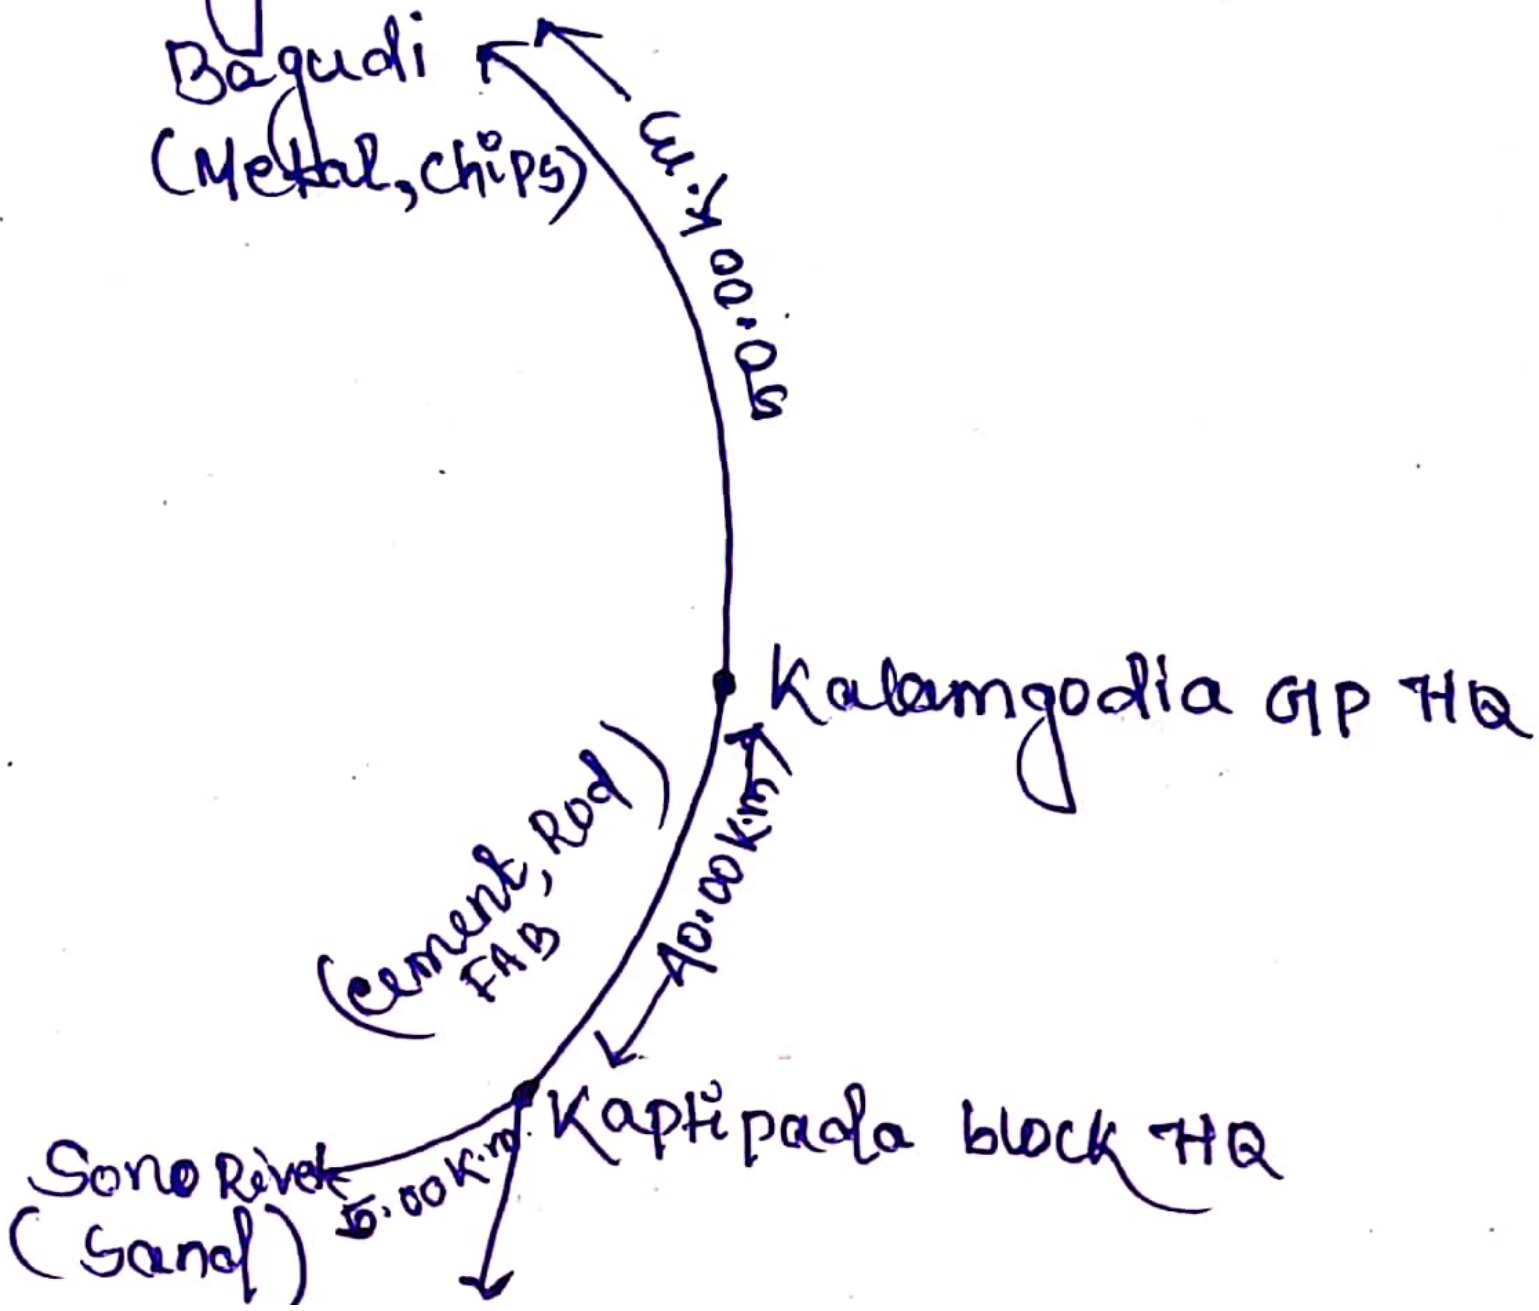 Bagudi
(Metal, chips)
50.00 K.m
Kalamgodia GP HQ
(cement, Rod)
FAB
10.00 K.m
Kaptipada block HQ
Sono River
5.00 K.m
(Sand)